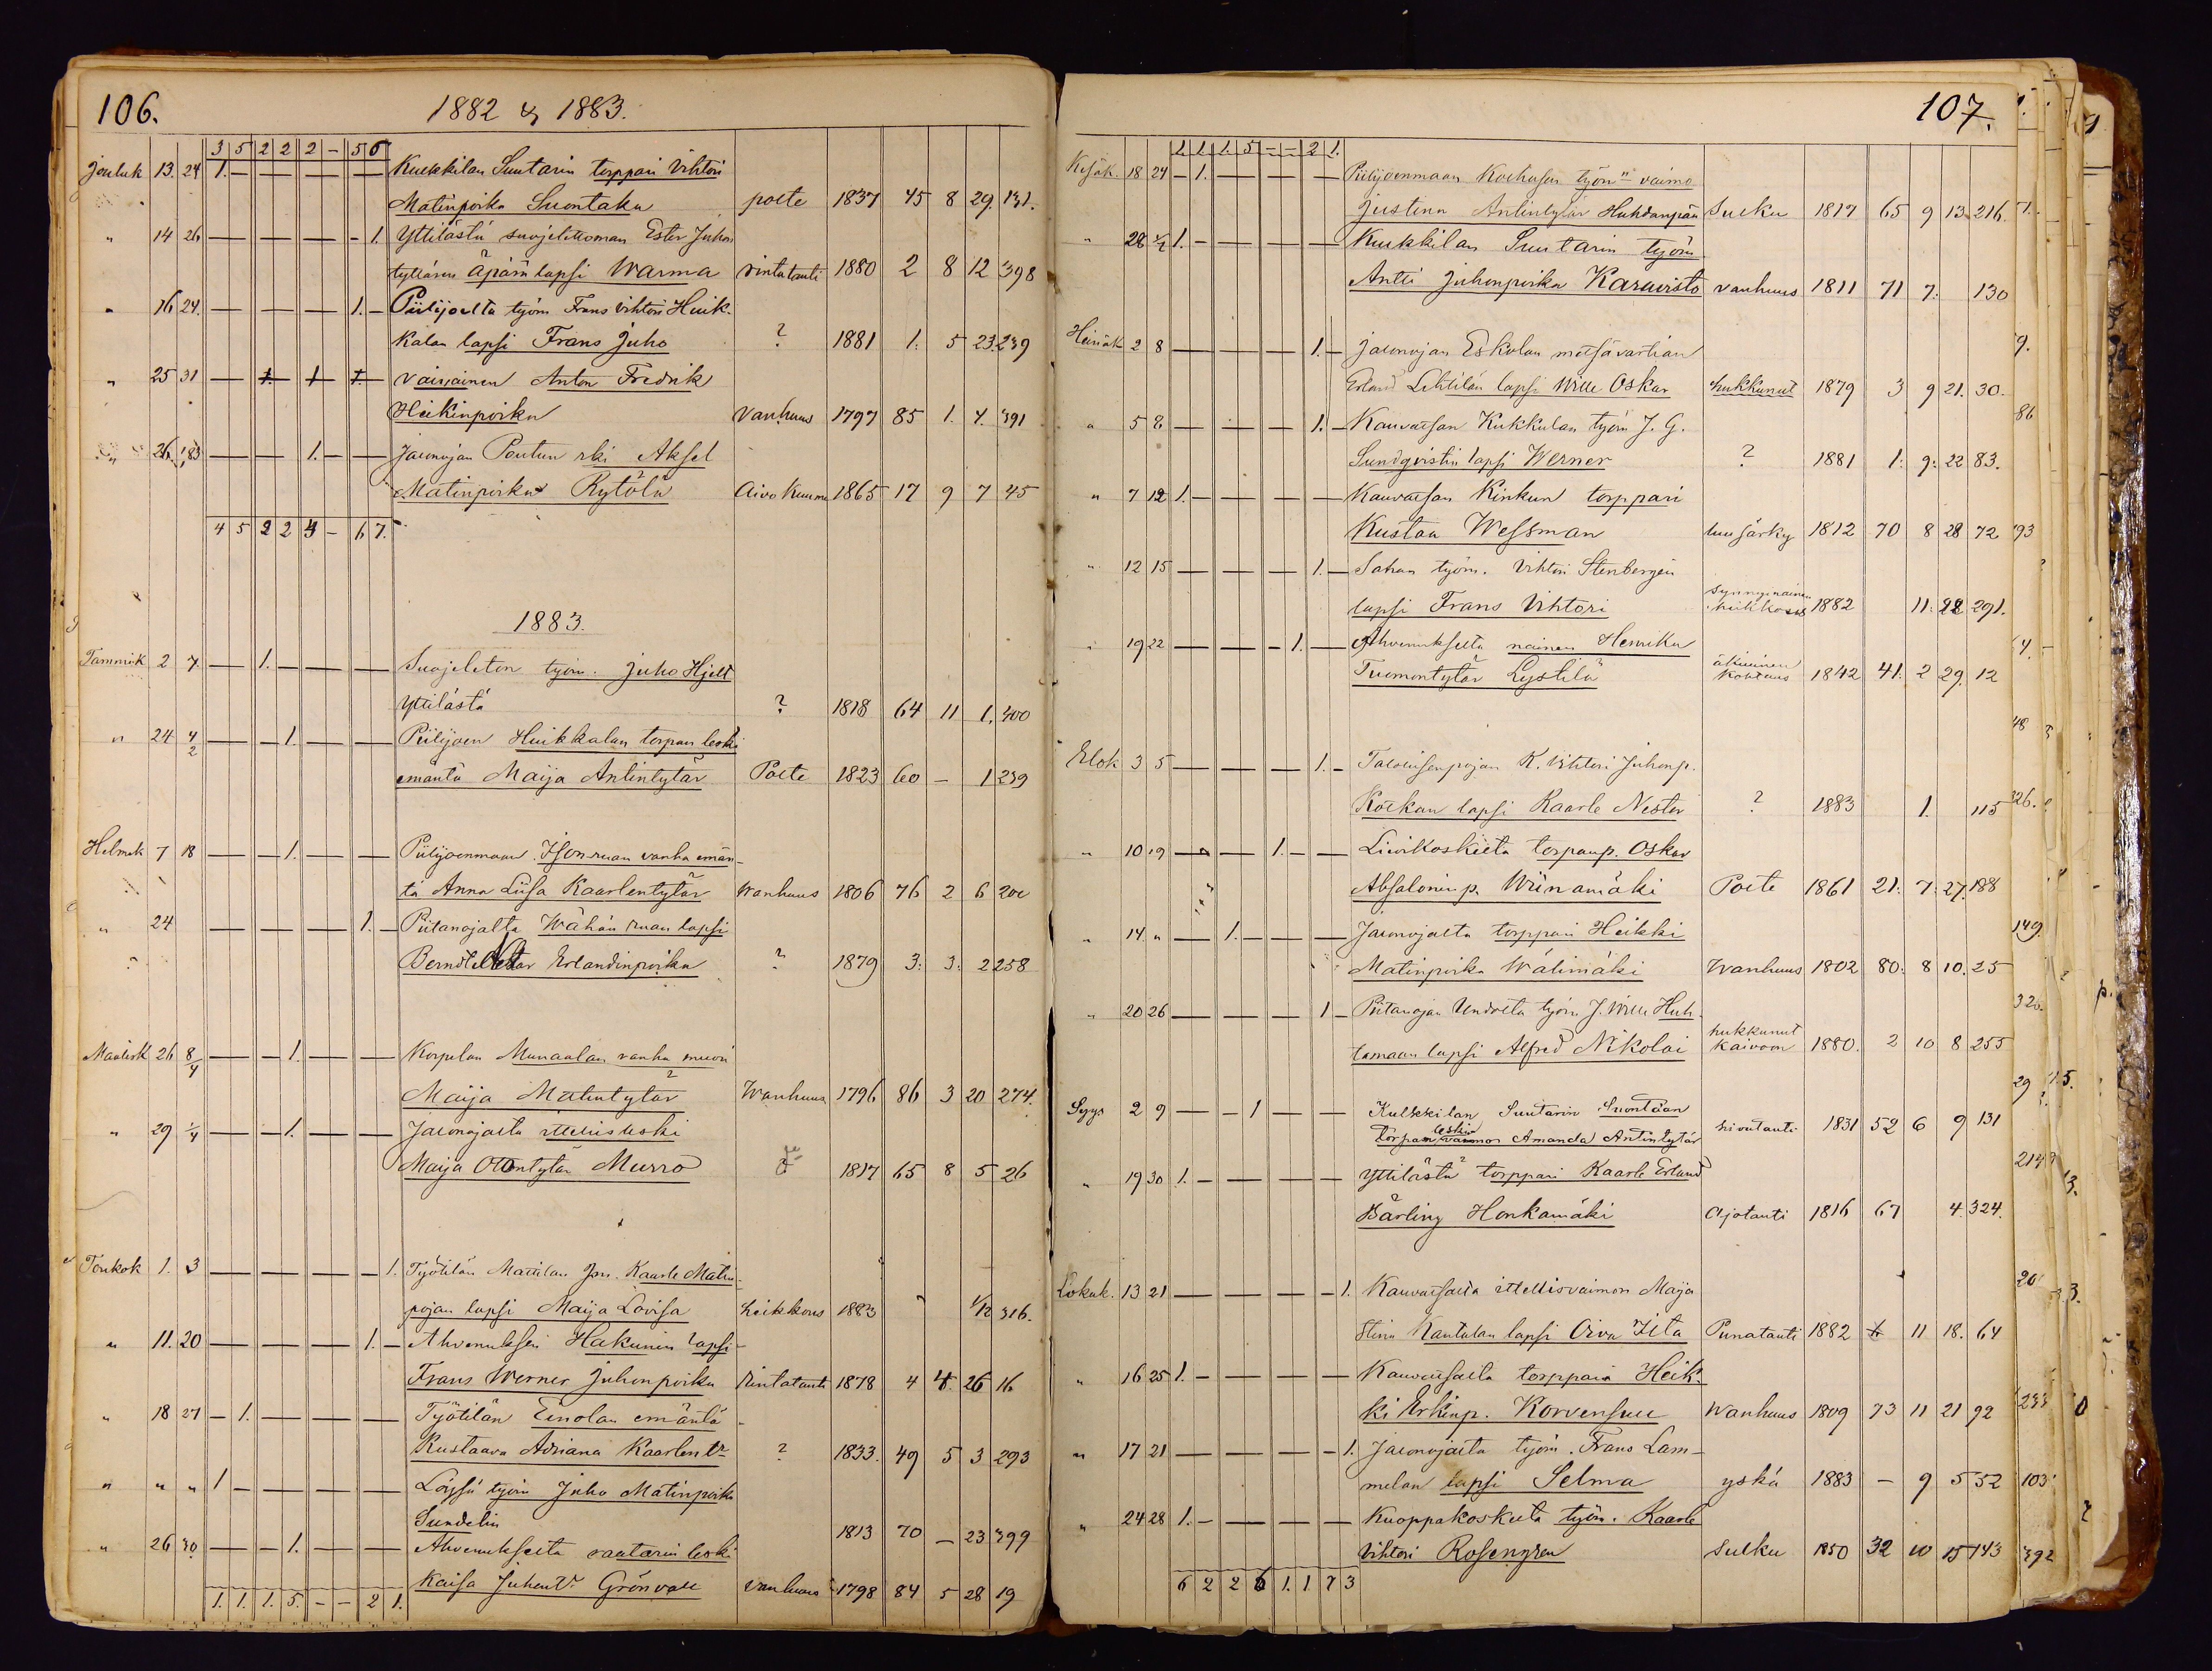 106.
1882 & 1883.
3 5 2 2 2 - 5 6
Jouluk 13. 24 1. — — — — — Kukkilan Suutarin torppari Vihtori
Matinpoika Suontaka polte 1837 45 8 29. 131.
" 14 26 — — — — - 1. Yttilästä suojelittoman Ester Juhon
tyttären äpärä lapsi Warma rintatauti 1880 2 8 12 398
" 16 24. — — — — 1. - Piilijoelta työm Frans Vihtori Heik-
kalan lapsi Frans Juho ? 1881 1. 5 23. 239
" 25 31 — 1. — 1 — 1. — vaivainen Anton Fredrik
Heikinpoika Vanhuus 1797 85 1. 7. 391
" 26. 1/1 83 — — 1. - — Jalonojan Poutun rki Aksel
Matinpoika Rytölä Aivo kuume 1865 17 9 7 45
4 5 2 2 3 - 6 7.
1883.
Tammik 2 7. — 1. — — — Suojeleton työm. Juho Hjelt
Yttilästä ? 1818 64 11 1. 400
" 24 4/2 — — 1. — — Piilijoen Heikkalan torpan leski
emäntä Maija Antintytär Polte 1823 60 - 1 239
Helmik 7 18 — — 1. — — Piilijoenmaan Isonmaan vanha emän-
tä Anna Liisa Kaarlentytär Wanhuus 1806 76 2 6 200
" 24 — — — — 1. — Piitanojalta Wähän maan lapsi
Berndt Nestor Erlandinpoika ? 1879 3: 3: 2 258
Maalisk 26 8/4 — — 1. — — Korpelan Munaalan vanha muori
Maija Matintytär Wanhuus 1796 86 3 20 274.
" 29 1/4 — — 1. — — Jalonojalta ittellis leski
Maija Ottontytär Murro 1817 65 8 5 26
Toukok 1. 3 — — — — - 1. Työtilän Mattilan Kaarle Matin-
pojan lapsi Maija Lovisa heikkous 1883 1/12 316.
" 11. 20 — — — — 1. - Ahvenuksen Hakunin lapsi
Frans Werner Juhonpoika Rintatauti 1878 4 4. 26 16
" 18 27 - 1. — — — — Työtilän Einolan emäntä
Kustaava Adriana Kaarlent:r ? 1833. 49 5 3 293
" " " 1 - — — — — työm Juho Matinpoika
Sundelin 1813 70 - 23 399
" 26 30. — — 1. — — Ahvenukselta vaatarin leski
Kaisa Juhont:r Grönvall vanhuus 1798 84 5 28 19
1. 1. 1. 5. - - 2 1.
107.
1. 1. 1. 5 - - 2 1.
Kesäk. 18 24 - 1. — — — — Piilijoenmaan työm vaimo
Justina Antintytär Huhdanpää Sulku 1817 65 9 13 216.
" 28 1/7 1. - — — — — Kukkilan Suutarin työm
Antti Juhonpoika Karavisto vanhuus 1811 71 7. 130
Heinäk 2 8 — — — — 1. - Jalonojan Eskolan metsävartian
Erland Lehtilän lapsi Wille Oskar hukkunut 1879 3 9 21. 30.
" 5 8 — — — — 1. - Kauvatsan Kukkulan työm J. G.
Sundqvistin lapsi Werner ? 1881 1: 9: 22 83.
" 7 12 1. - — — — — Kauvatsan Kinkun torppari
Kustaa Wessman luusärky 1812 70 8 28 72
" 12 15 — — — — 1. - Sahan työm. Vihtori Stenbergin
lapsi Frans Vihtori synnynäinen heikkous 1882 11: 22 291.
" 19 22 — — — - 1. — Ahvenukselta nainen Henrika
Tuomontytär Lystilä äkkiinen kohtaus 1842 41. 2 29. 12
Elok 3 5 — — — — 1. - Talollisenpojan K. Vihtori Juhonp.
Kolkan lapsi Kaarle Nestor ? 1883 1. 115
" 10 19 — — — 1. - — Livikoskelta torpanp. Oskar
Absalonin p. Wiinamäki Polte 1861 21: 7: 27. 188
" 14 " — 1. — — — Jalonojalta torppari Heikki
Matinpoika Wälimäki Wanhuus 1802 80: 8 10. 25
" 20 26 — — — — 1 - Piitanojan Undolta työm J. Wille Huh-
tamaan lapsi Alfred Nikolai hukkunut kaivoon 1880. 2 10 8 255
Syys 2 9 — - 1 — — Kulkkilan Suutarin Suontaan
torpan leski vaimo Amanda Antintytär hivutauti 1831 52 6 9 131
" 19 30 1. - — — — — Yttilästä torppari Kaarle Erland
Bärling Honkamäki Ajotauti 1816 67 4. 324.
Lokak. 13 21 — — — — - 1. Kauvatsalta ittellisvaimon Maija
Stina Rautalan lapsi Oiva Iita Punatauti 1882 11 18. 64
" 16 25 1. - — — — — Kauvatsalta torppari Heik-
ki Erkinp. Korvensuu Wanhuus 1809 73 11 21 92
" 17 21 — — — — - 1. Jalonojalta työm. Frans Lam-
melan lapsi Selma yskä 1883 - 9 5 52
" 24 28 1. - — — — — Kuoppakoskelta työm. Kaarle
Vihtori Rosengren Sulku 1850 32 10 15 143
6 2 2 6 1. 1 7 3